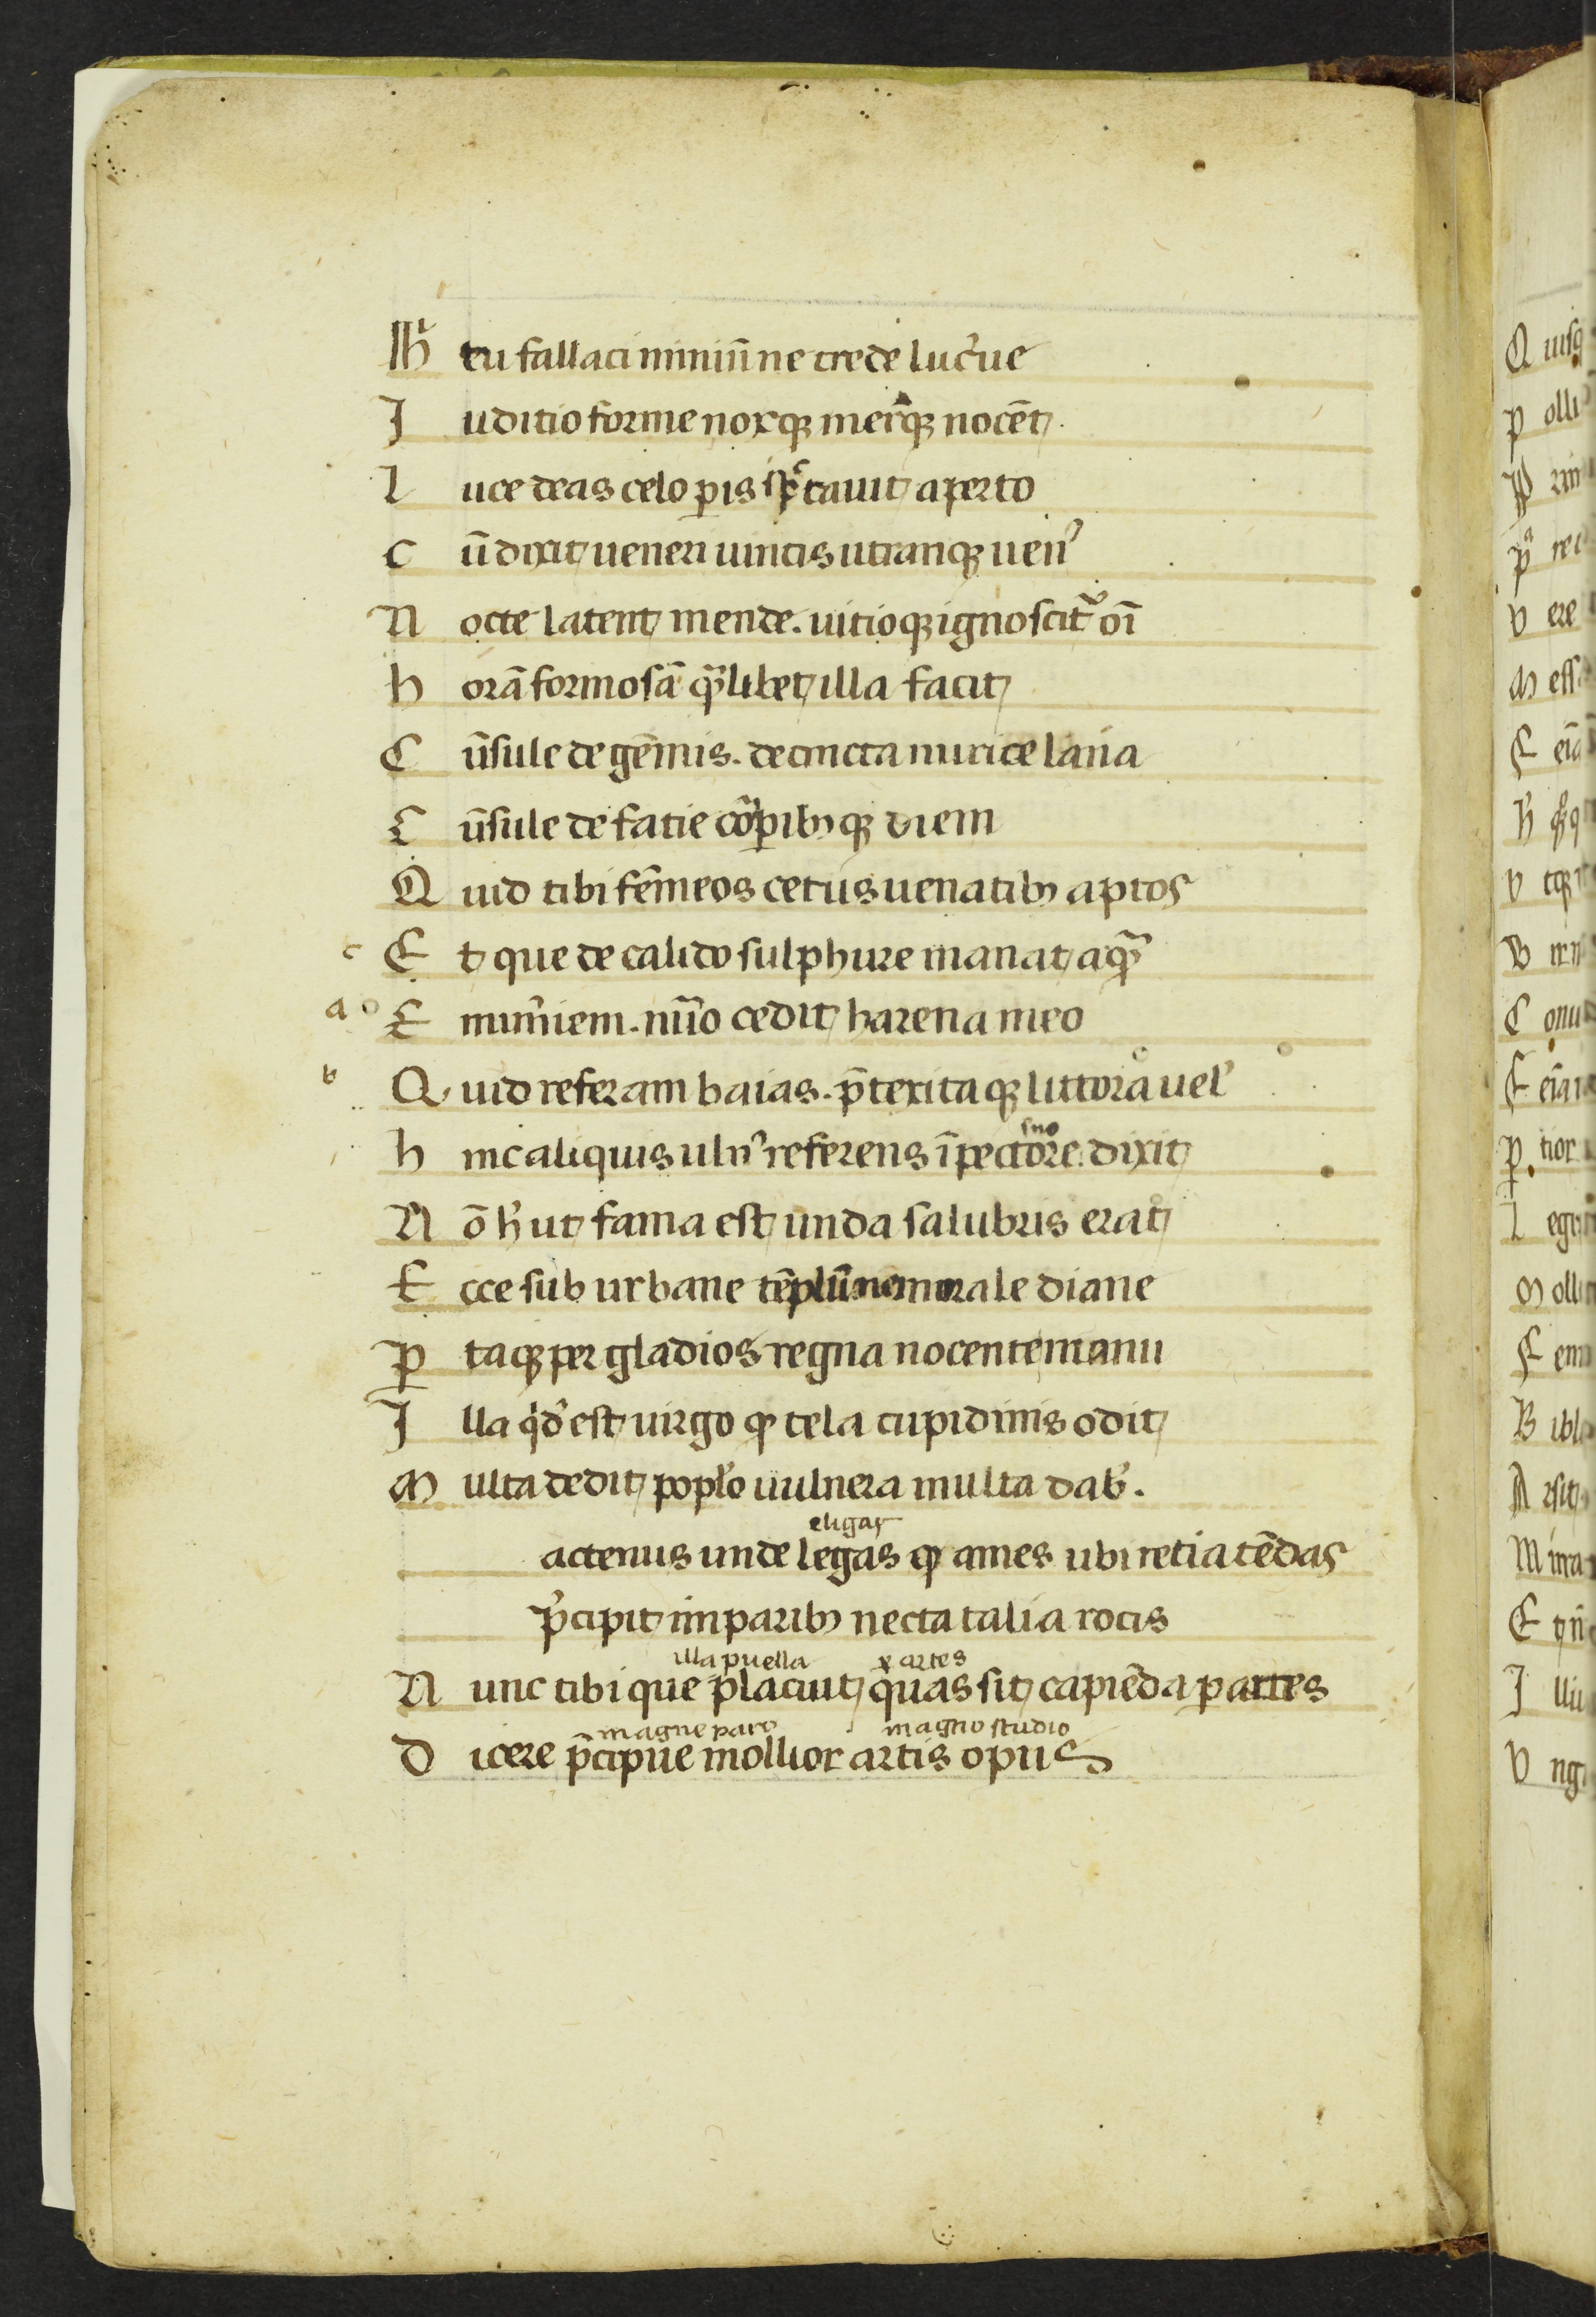 Hı̄ tu fallaci nimiū ne crede lucʼne
I uditio forme noxqꝫ merūqꝫ nocēt
l uce deas celo ꝑis spctauit aperto
C ū dixit ueneri uincis utranqꝫ uenʼ
N octe latent mende. uitioqꝫ ignoscitʳ oı̄
h orā formosā quālibet illa facit
C ōsule de gēmis. de tincta murice lana
C ōsule de facie corꝑibꝫqꝫ diem
Q uid tibi fēmeos cetus uenatibꝫ aptos
c E t que de calido sulphure manat aqua
a E numʼem. numʼo cedit harena meo
b Q uid referam baias. p̄textaqꝫ littora uelʼ
h inc aliquis ulnʼ referens ı̄ pectore dixit
suo
N ō hʼ ut fama est unda salubris erat
E cce sub urbane tēplū nemorale diane
P taqꝫ per gladios regna nocente manu
I lla qͥdʼ est uirgo qꝫ tela cupidinis odit
M ulta dedit poplo uulnera multa dabʼ.
eligas
actenus unde legas qꝫ ames ubi retia tēdas
pʼcipit imparibꝫ necta talia rotis
illa puella artes
N unc tibi que placuit quas sit capiēda partes
magne paro magno studio
D icere p̄cipue mollior artis opus